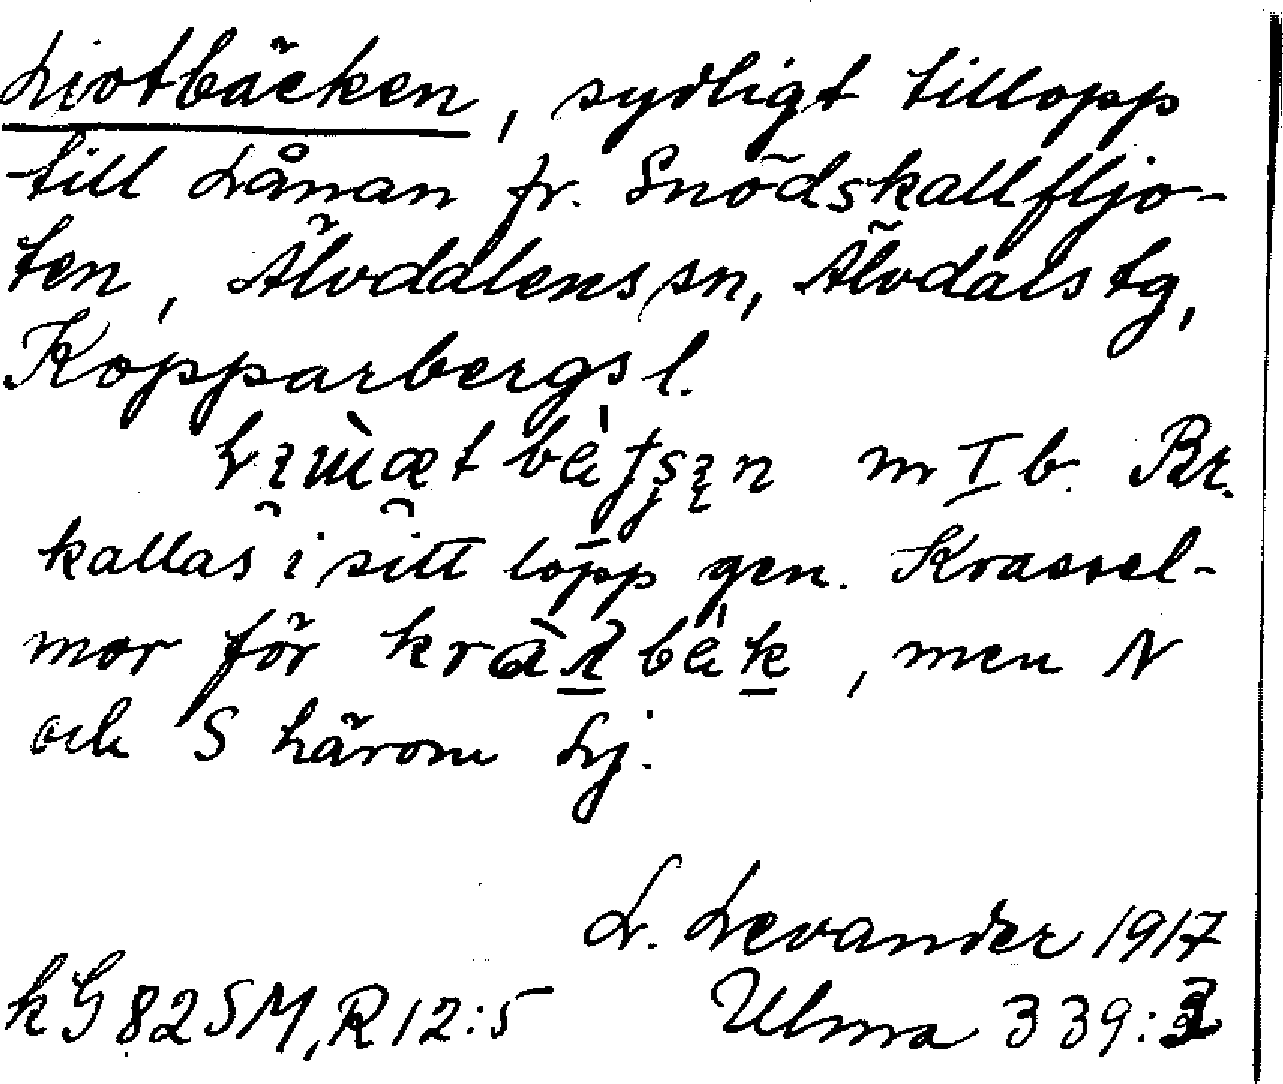 Livtbäcken, sydligt tillopp
till Lånan fr. Snödskallfljo-
ten, Älvdalens sn, Älvdals tg,
Kopparbergs l.
m I b. Br.
kallas i sitt lopp gen. Krassel-
mor för , men N
och S härom Lj.
L. Levander 1917
kG 82 SM, R 12:5 Ulma 339: